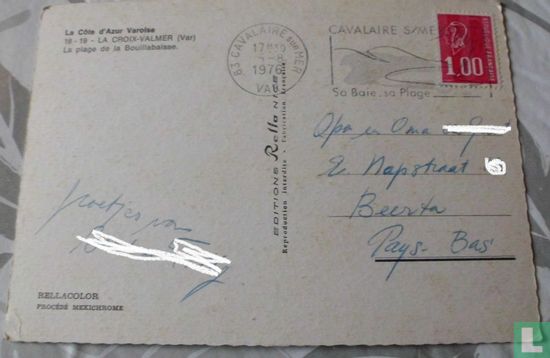 La Côte d'Azur Varoise
18-19 - LA CROIX-VALMER (Var)
La plage de la Bouillabaisse.
83 CAVALAIRE SUR MER
1976
VAR
CAVALAIRE S/MER
Sa Baie, sa Plage
1,00
Opa en Oma
Beerta
Pays-Bas
groetjes van
EDITIONS Rella NICE
Reproduction interdite - Fabrication française
RELLACOLOR
PROCÉDÉ MEXICHROME